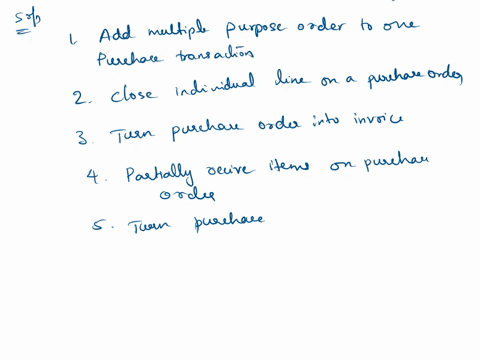 Sol
1. Add multiple purpose order to one
Purchase transaction
2. Close individual line on a purchase order
3. Turn purchase order into invoice
4. Partially receive items on purchase
order
5. Turn purchase